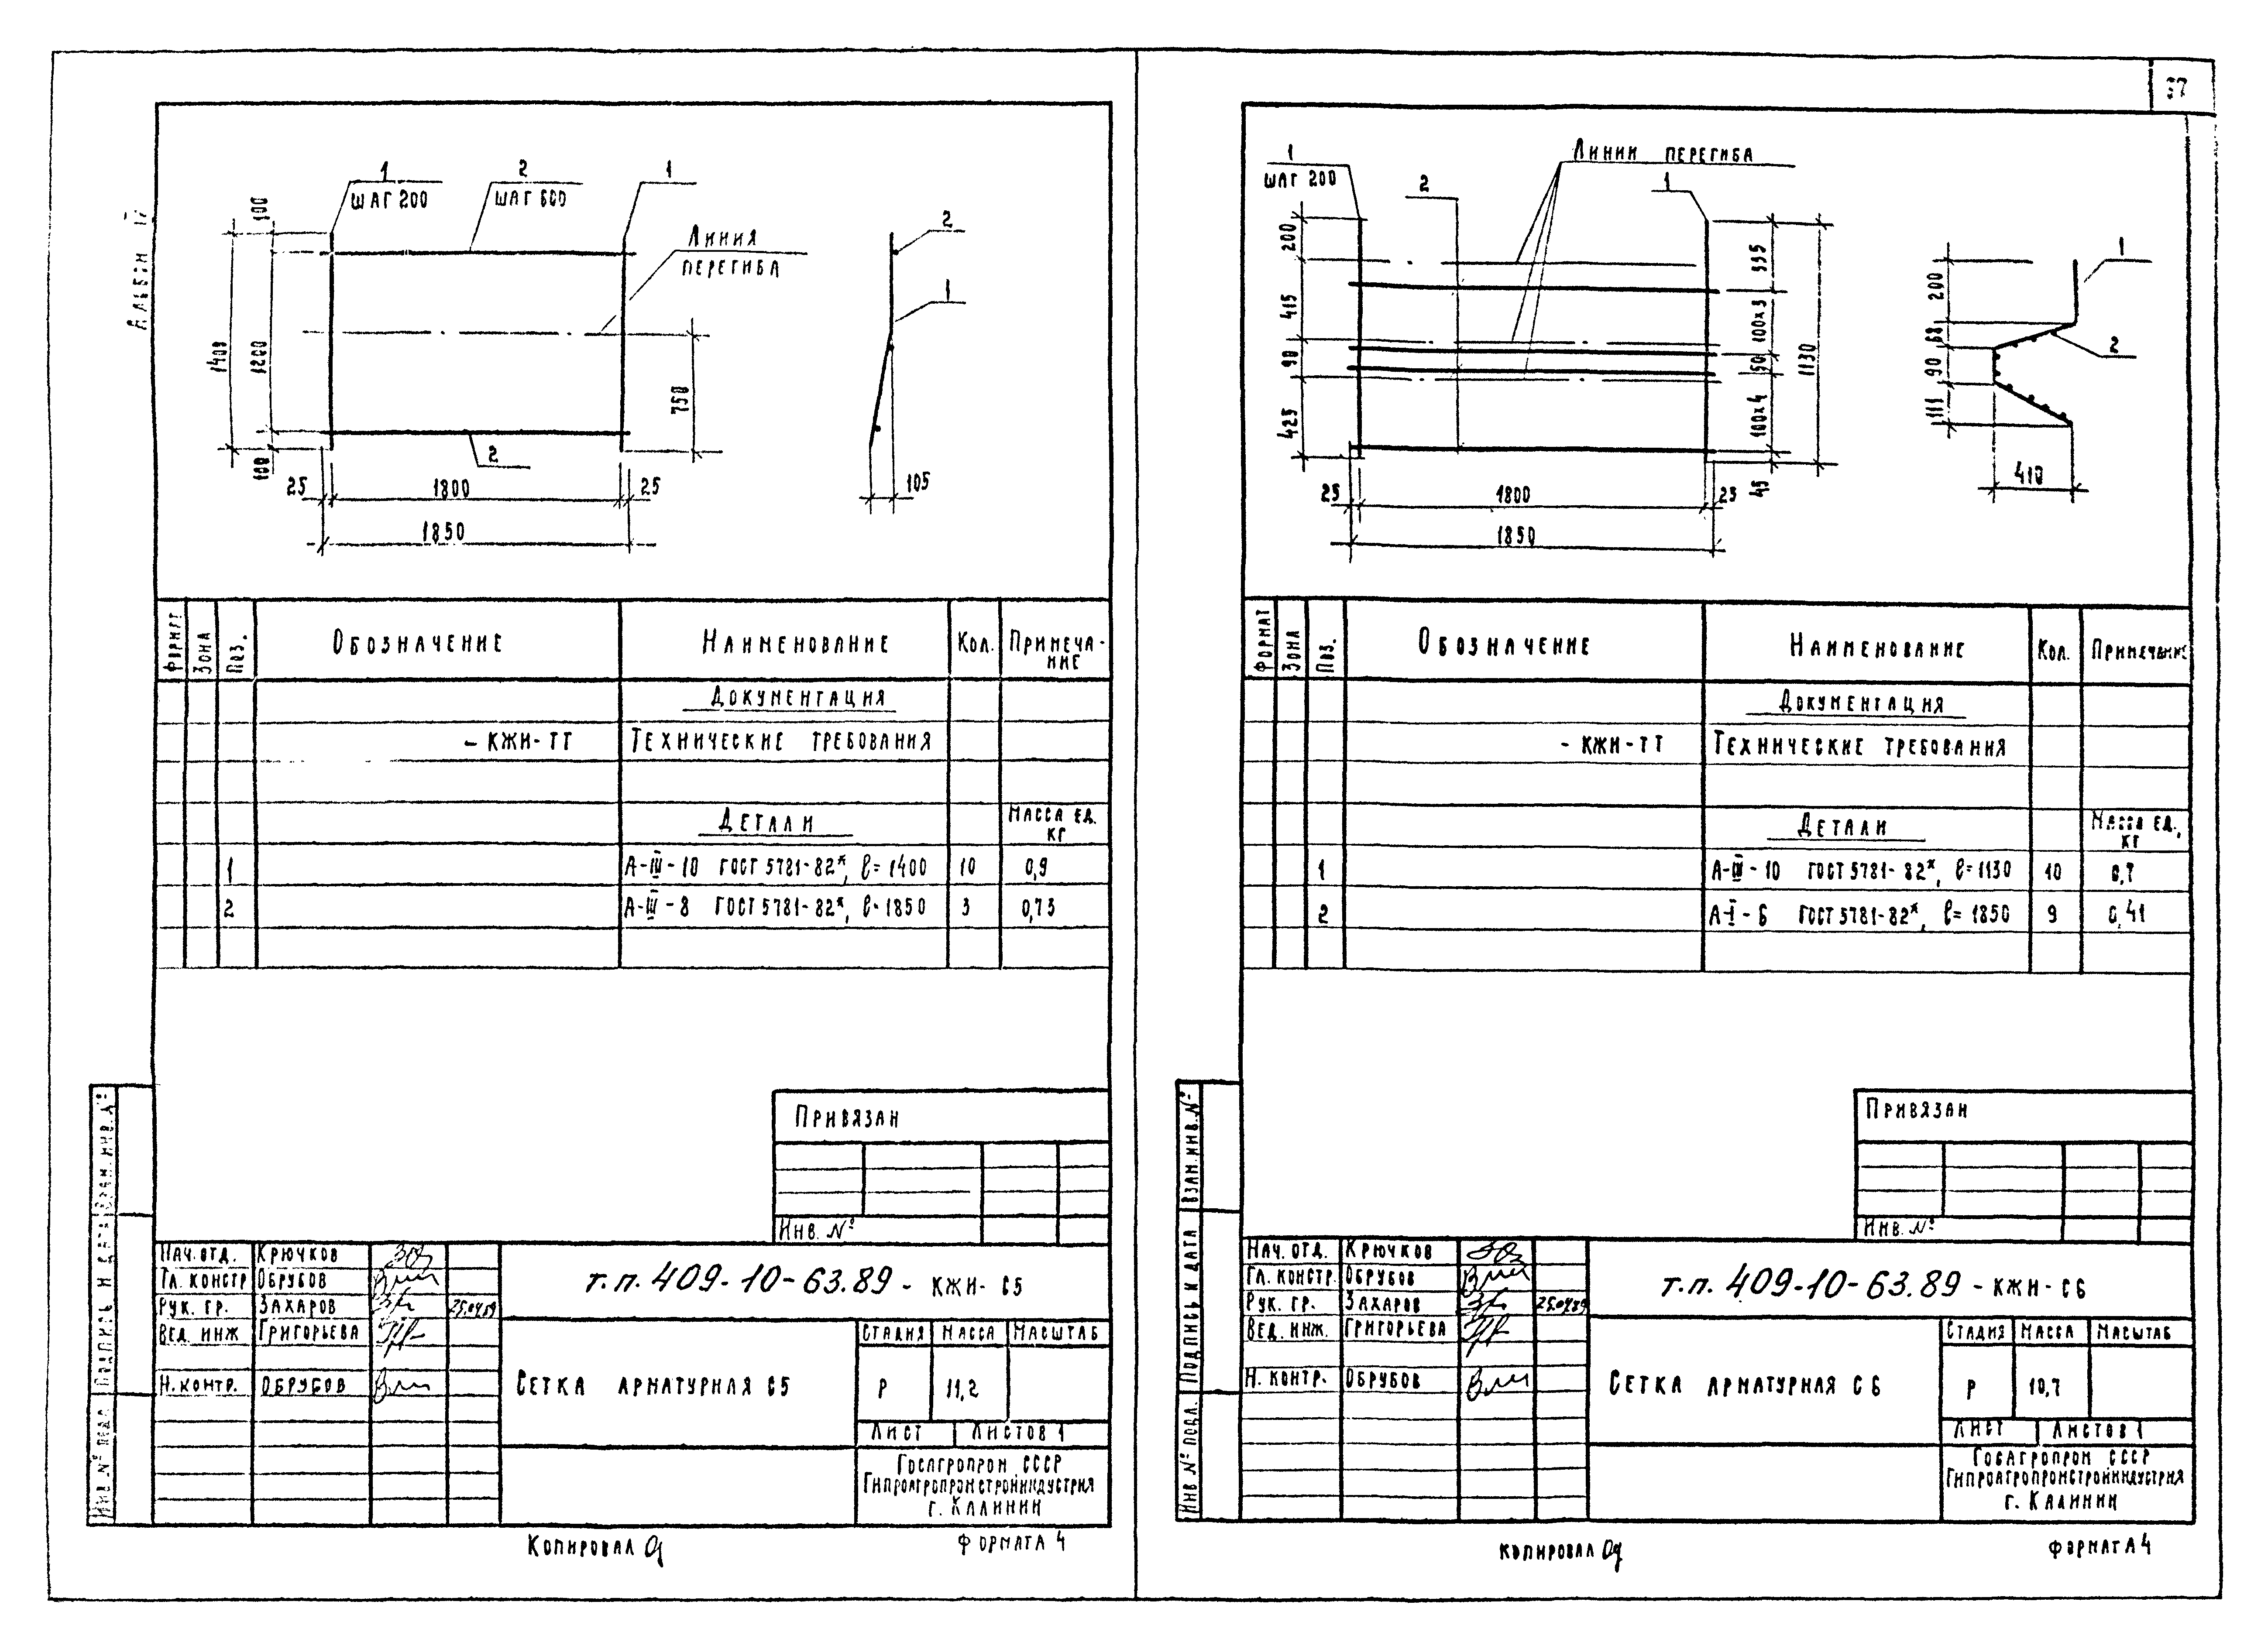 37
Альбом IV
1
ШАГ 200
2
ШАГ 600
1
ЛИНИЯ
ПЕРЕГИБА
2
1
2
100
1400
1200
100
750
25
1800
25
1850
105
ФОРМАТ
ЗОНА
ПОЗ.
ОБОЗНАЧЕНИЕ
НАИМЕНОВАНИЕ
КОЛ.
ПРИМЕЧА-
НИЕ
ДОКУМЕНТАЦИЯ
- КЖИ-ТТ ТЕХНИЧЕСКИЕ ТРЕБОВАНИЯ
ДЕТАЛИ
МАССА ЕД.
КГ
1 А-III-10 ГОСТ 5781-82*, ℓ=1400 10 0,9
2 А-III-8 ГОСТ 5781-82*, ℓ=1850 3 0,73
ПРИВЯЗАН
ИНВ. №
НАЧ. ОТД. КРЮЧКОВ
ГЛ. КОНСТР ОБРУБОВ
РУК. ГР. ЗАХАРОВ 25.04.89
ВЕД. ИНЖ ГРИГОРЬЕВА
Н. КОНТР. ОБРУБОВ
т.п. 409-10-63.89 - КЖИ- С5
СЕТКА АРМАТУРНАЯ С5
СТАДИЯ МАССА МАСШТАБ
Р 11,2
ЛИСТ ЛИСТОВ 1
ГОСАГРОПРОМ СССР
ГИПРОАГРОПРОМСТРОЙИНДУСТРИЯ
г. КАЛИНИН
ИНВ № ПОДЛ
ПОДПИСЬ И ДАТА
ВЗАМ. ИНВ. №
КОПИРОВАЛ
ФОРМАТ А 4
1
ШАГ 200
2
ЛИНИИ ПЕРЕГИБА
1
1
2
200
415
90
425
335
100×3
50
100×4
45
1130
25
1800
25
1850
200
68
90
111
410
ФОРМАТ
ЗОНА
ПОЗ.
ОБОЗНАЧЕНИЕ
НАИМЕНОВАНИЕ
КОЛ.
ПРИМЕЧАНИЕ
ДОКУМЕНТАЦИЯ
- КЖИ-ТТ ТЕХНИЧЕСКИЕ ТРЕБОВАНИЯ
ДЕТАЛИ
МАССА ЕД.,
КГ
1 А-III-10 ГОСТ 5781-82*, ℓ=1130 10 0,7
2 А-I-6 ГОСТ 5781-82*, ℓ=1850 9 0,41
ПРИВЯЗАН
ИНВ. №
НАЧ. ОТД. КРЮЧКОВ
ГЛ. КОНСТР. ОБРУБОВ
РУК. ГР. ЗАХАРОВ 25.04.89
ВЕД. ИНЖ. ГРИГОРЬЕВА
Н. КОНТР. ОБРУБОВ
т.п. 409-10-63.89 - КЖИ-С6
СЕТКА АРМАТУРНАЯ С6
СТАДИЯ МАССА МАСШТАБ
Р 10,7
ЛИСТ ЛИСТОВ 1
ГОСАГРОПРОМ СССР
ГИПРОАГРОПРОМСТРОЙИНДУСТРИЯ
г. КАЛИНИН
ИНВ № ПОДЛ.
ПОДПИСЬ И ДАТА
ВЗАМ. ИНВ. №
КОПИРОВАЛ
ФОРМАТ А4